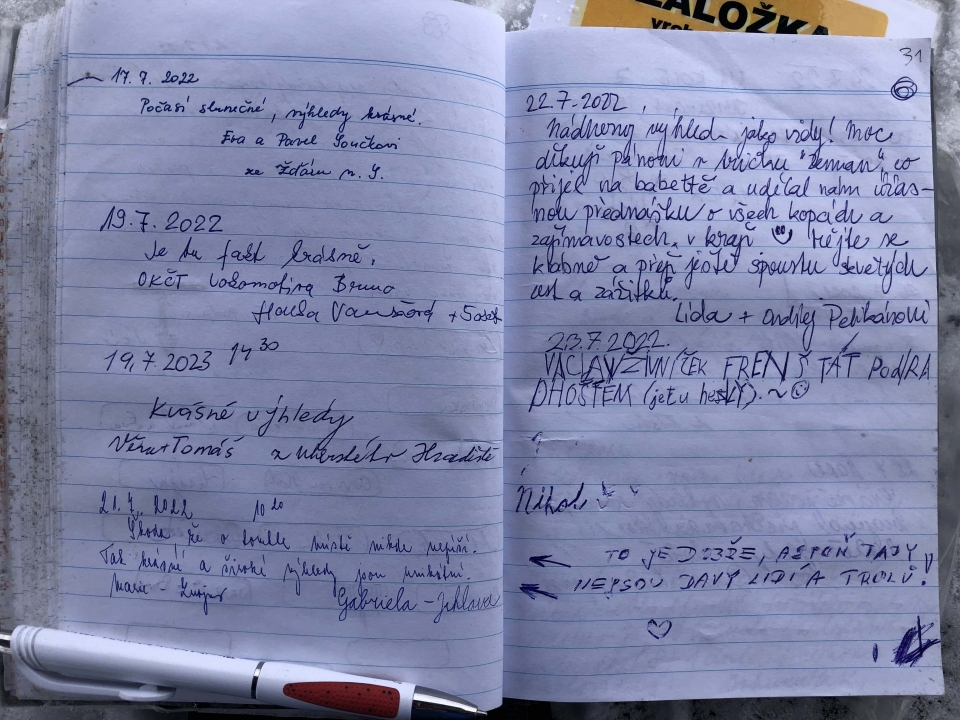 17. 7. 2022
Počasí slunečné, výhledy krásné.
Eva a Pavel Součkovi
ze Žďáru n. S.
19. 7. 2022
Je tu fakt krásně.
OKČT Lokomotiva Brno
+ 5 osob
19. 7. 2023 14 30
Krásné výhledy
Věra + Tomáš z Uherského Hradiště
21. 7. 2022 10 20
Škoda že o tomhle místě nikde nepíší.
Tak krásné a široké výhledy jsou unikátní.
Marie -
Gabriela - Jihlava
ZÁLOŽKA
31
22. 7. 2022,
Nádherný výhled jako vždy! Moc
děkuji pánovi z vrchu "Zeman", co
přijel na babettě a udělal nám úžas-
nou přednášku o všech kopcích a
zajímavostech v kraji Mějte se
krásně a přeji ještě spoustu skvělých
cest a zážitků.
Lída + Ondřej Pelikánovi
23. 7. 2022.
VÁCLAV ŽIVNÍČEK FRENŠTÁT POD RA
DHOŠTĚM (je tu hesky). ~
Nikol
TO JE DOBŘE, ASPOŇ TADY
NEJSOU DAVY LIDÍ A TROLŮ!